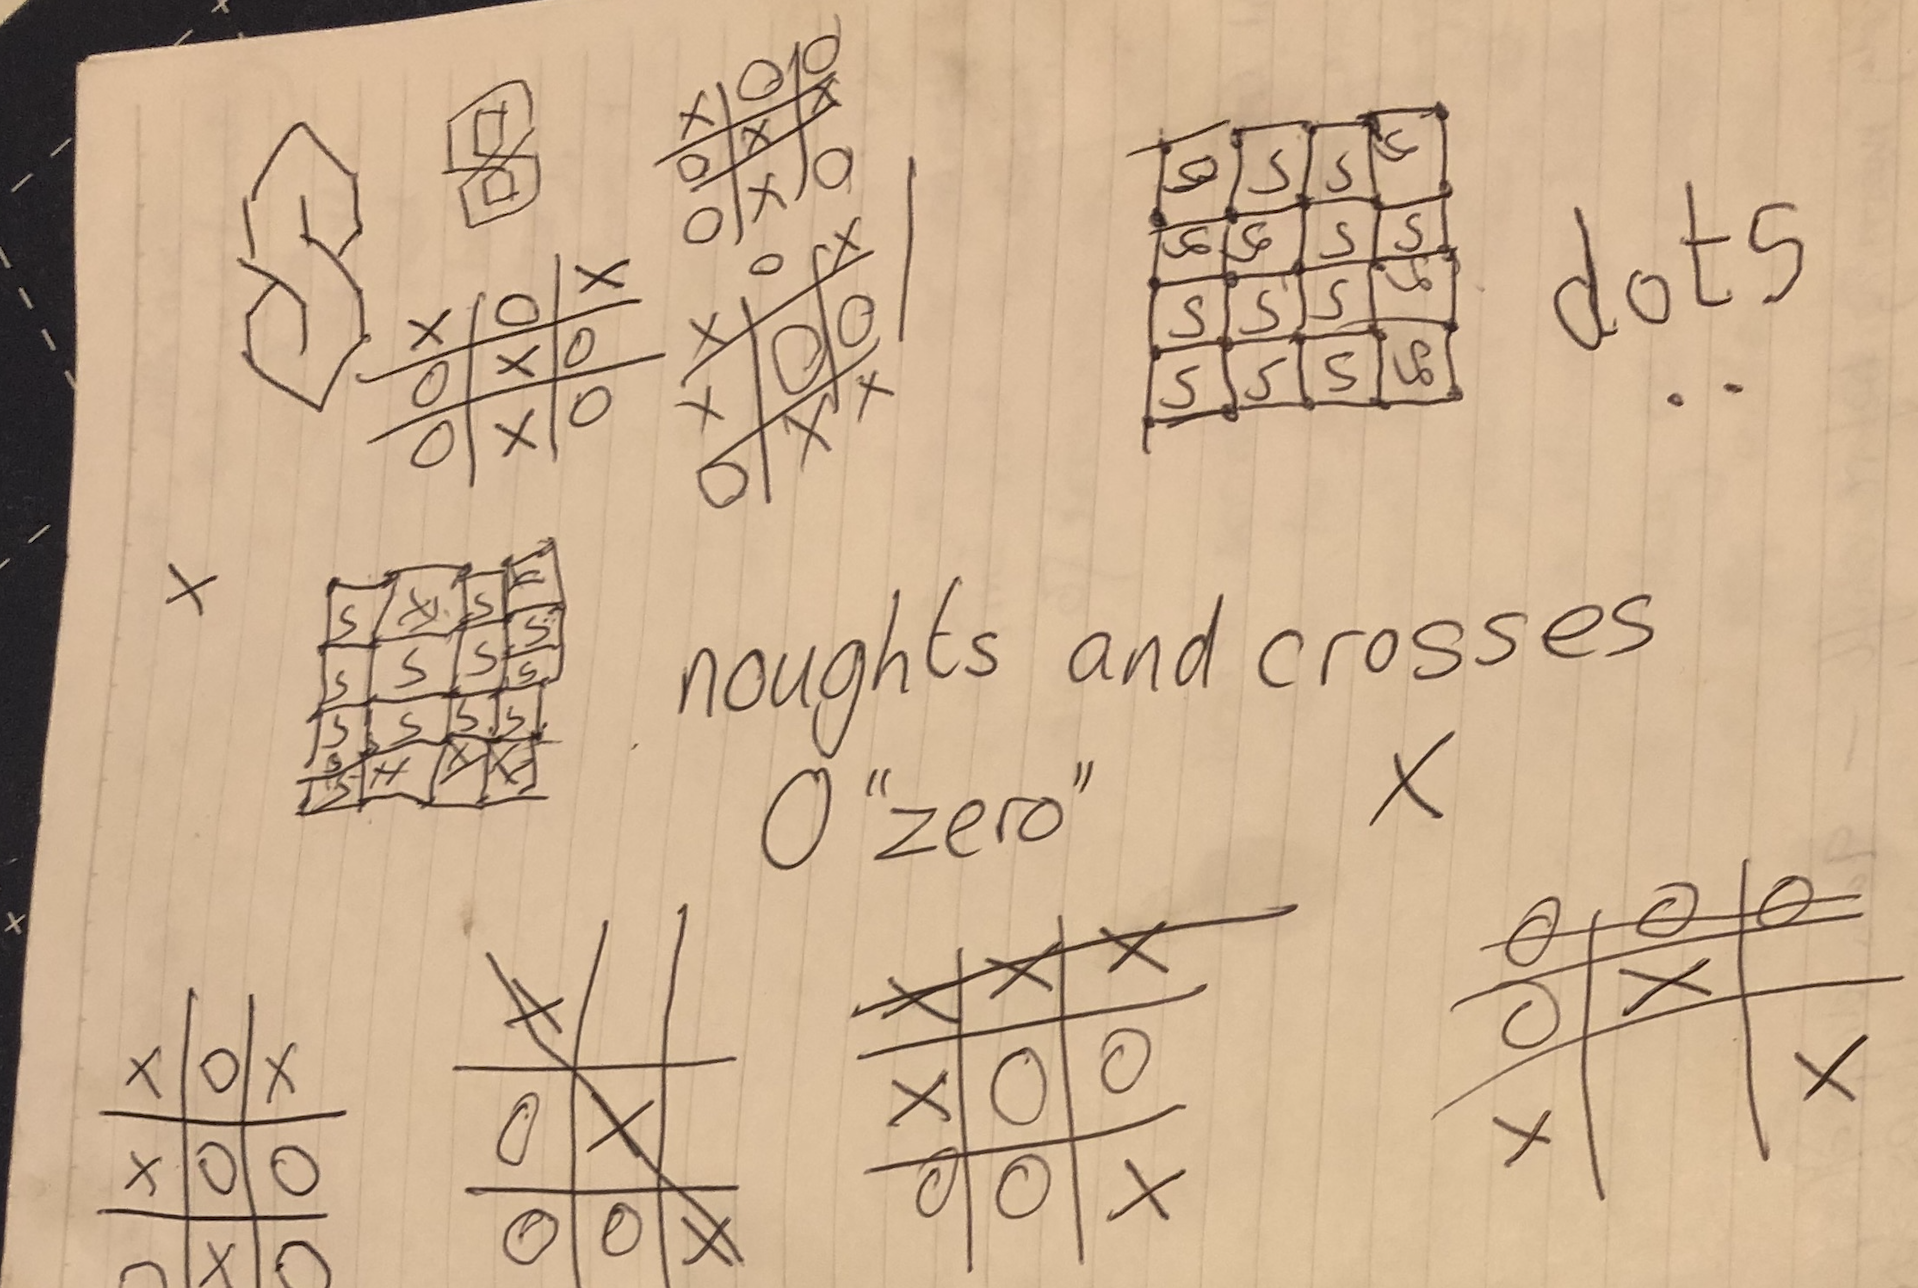 dots
noughts and crosses
O "zero" X
X
X O O
X X
O X
O X O
X O X
O X O
O X O
O X
X O O
X X X
O
S S S S
S S S S
S S S S
S S S S
S X S S
S S S S
S S S S
S S S
S X X X
X O X
X O O
O X O
X
O X
O O X
X X X
X O O
O O X
O O O
O X
X X